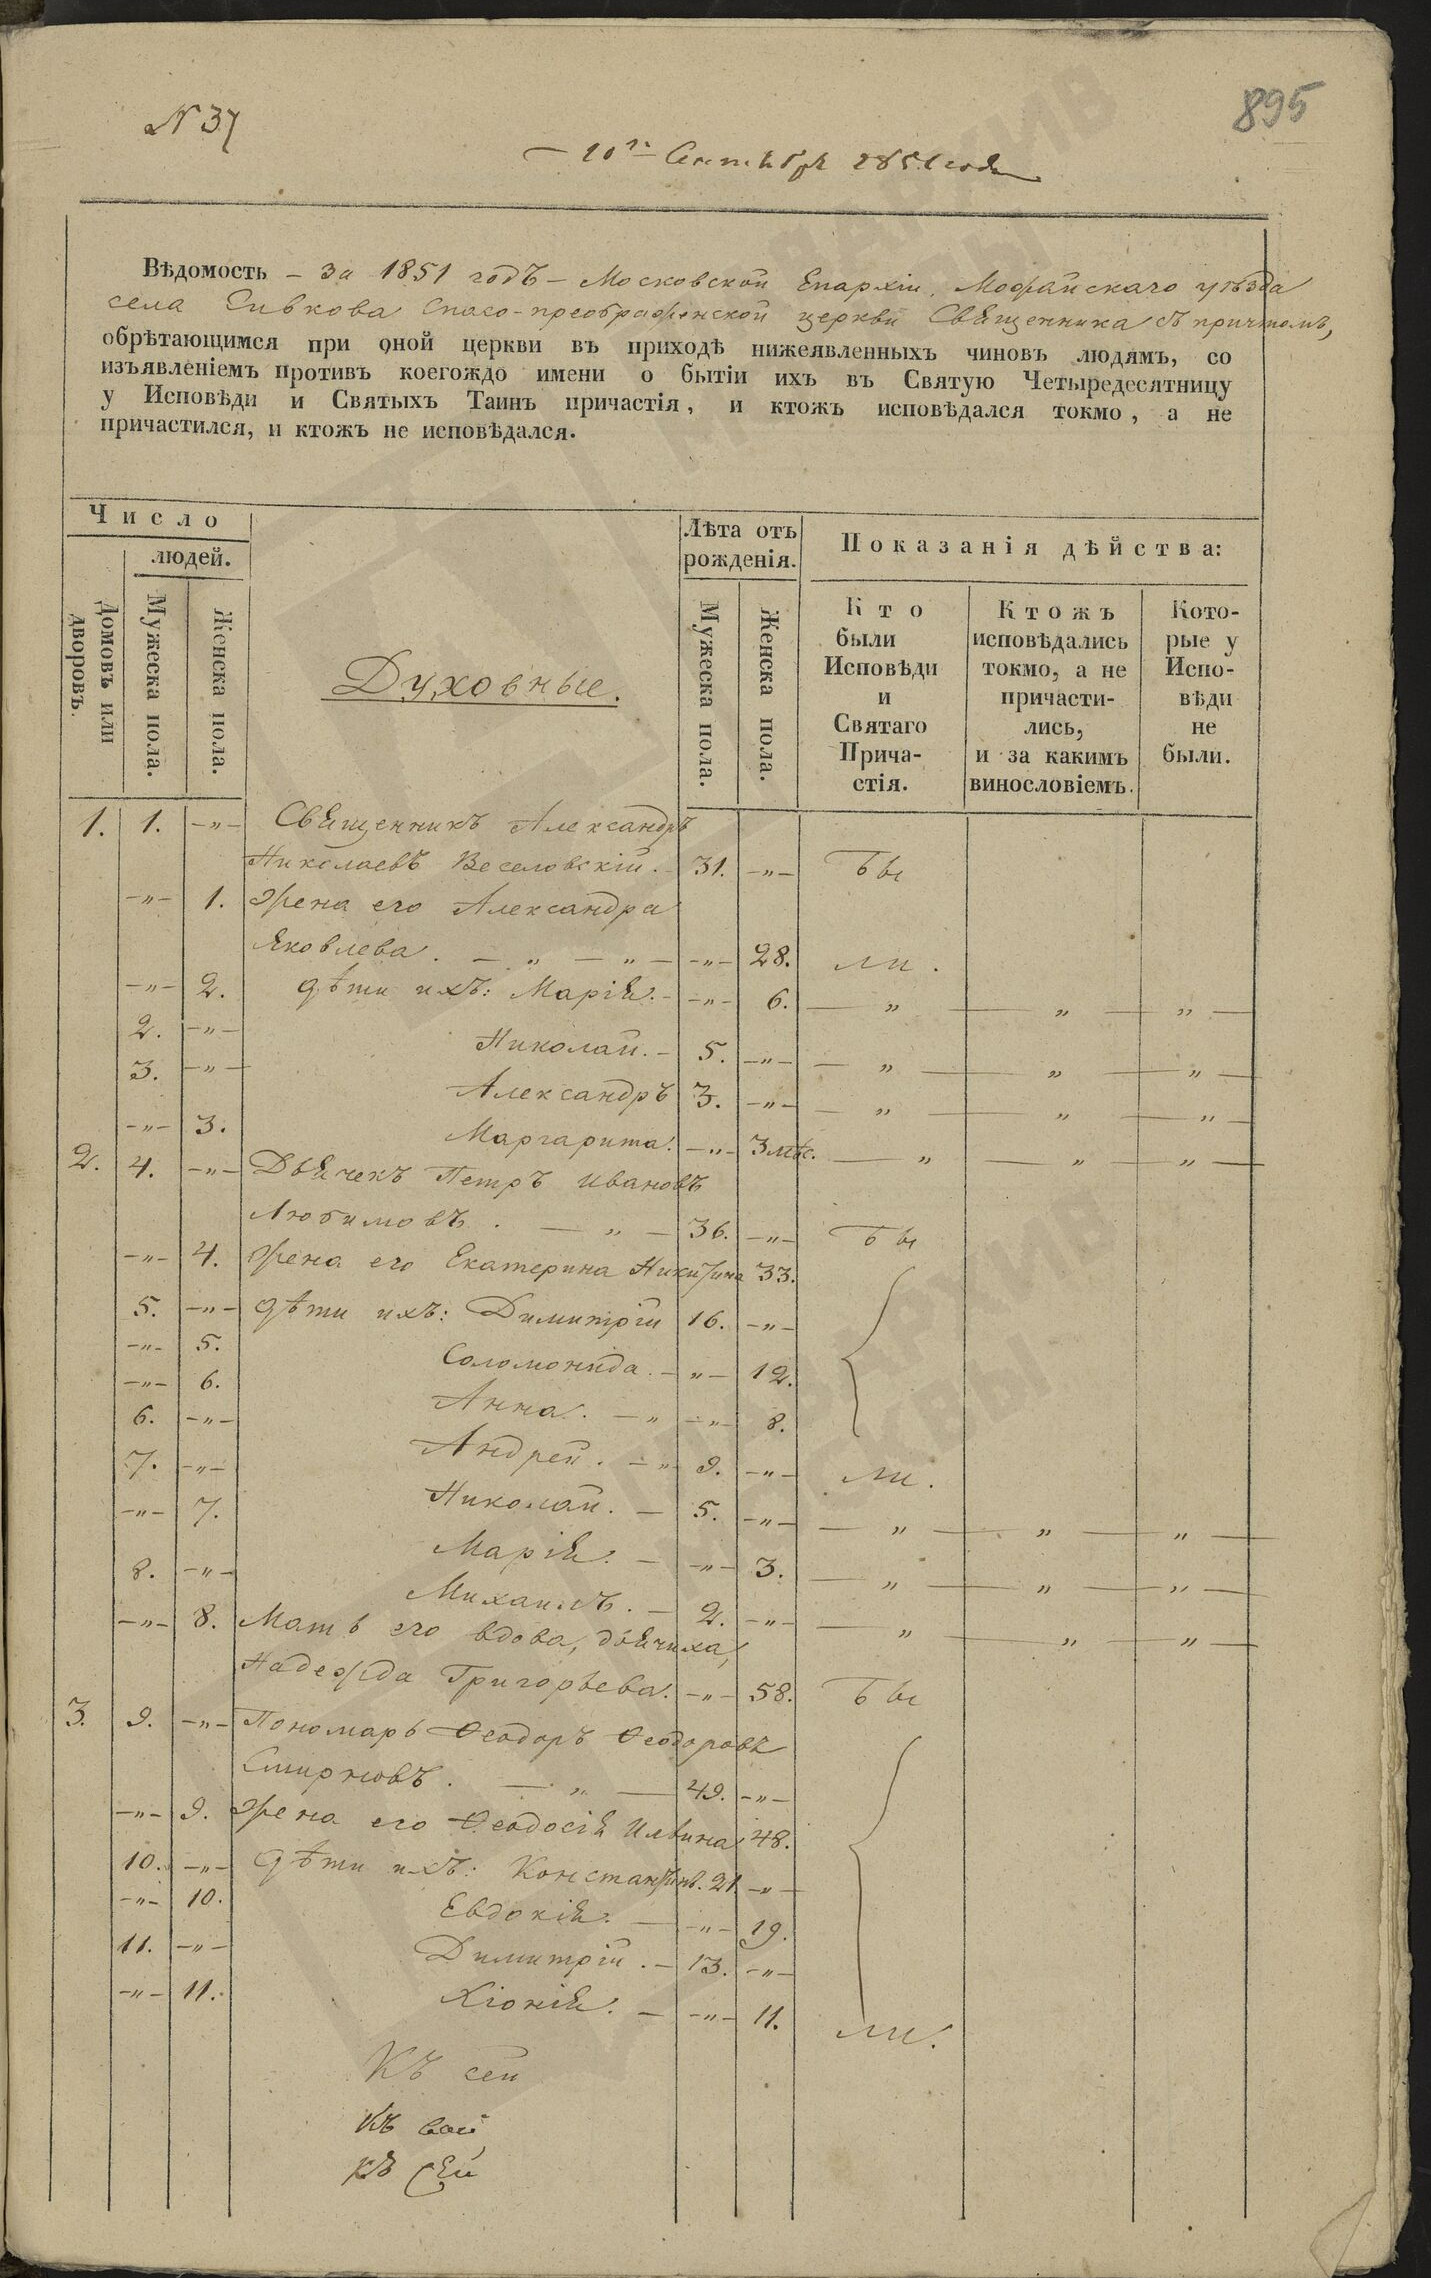 N 37
895
10го Сентября 1851 года
Вѣдомость – за 1851 годъ – Московской Епархіи, Можайскаго уѣзда
села Сивкова Спасо-преображенской церкви Священника съ причтомъ,
обрѣтающимся при оной церкви въ приходѣ нижеявленныхъ чиновъ людямъ, со
изъявленіемъ противъ коегождо имени о бытіи ихъ въ Святую Четыредесятницу
у Исповѣди и Святыхъ Таинъ причастія, и ктожъ исповѣдался токмо, а не
причастился, и ктожъ не исповѣдался.
Число
людей.
Домовъ или дворовъ.
Мужеска пола.
Женска пола.
Духовные.
Лѣта отъ
рожденія.
Мужеска пола.
Женска пола.
Показанія дѣйства:
Кто
были
Исповѣди
и
Святаго
Прича-
стія.
Ктожъ
исповѣдались
токмо, а не
причасти-
лись,
и за какимъ
винословіемъ.
Кото-
рые у
Испо-
вѣди
не
были.
1. 1. –„– Священникъ Александръ
Николаевъ Веселовскій. 31. –„– Бы
–„– 1. Жена его Александра
Яковлева. – „ – „ – –„– 28. ли.
–„– 2. дѣти ихъ: Марія. – –„– 6. – „ – „ – „ –
2. –„– Николай. – 5. –„– – „ – „ – „ –
3. –„– Александръ 3. –„– – „ – „ – „ –
–„– 3. Маргарита. –„– 3 мѣс. – „ – „ – „ –
2. 4. –„– Дьячекъ Петръ Ивановъ
Любимовъ. – „ – 36. –„– Бы
–„– 4. Жена его Екатерина Никитина 33.
5. –„– дѣти ихъ: Димитрій 16. –„–
–„– 5. Соломонида. – „ – 12.
–„– 6. Анна. – „ –„– 8.
6. –„– Андрей. – „ 9. –„– ли.
7. –„– Николай. – 5. –„– – „ – „ – „ –
–„– 7. Марія. – –„– 3. – „ – „ – „ –
8. –„– Михаилъ. – 2. –„– – „ – „ – „ –
–„– 8. Мать его вдова, дьячиха,
Надежда Григорьева. –„– 58. Бы
3. 9. –„– Пономарь Ѳеодоръ Ѳеодоровъ
Смирновъ. – „ – 49. –„–
–„– 9. Жена его Ѳеодосія Ильина 48.
10. –„– дѣти ихъ: Константинъ. 21. –„–
–„– 10. Евдокія. – –„– 19.
11. –„– Димитрій. – 13. –„–
–„– 11. Хіонія. – –„– 11. ли.
Къ сей
къ сей